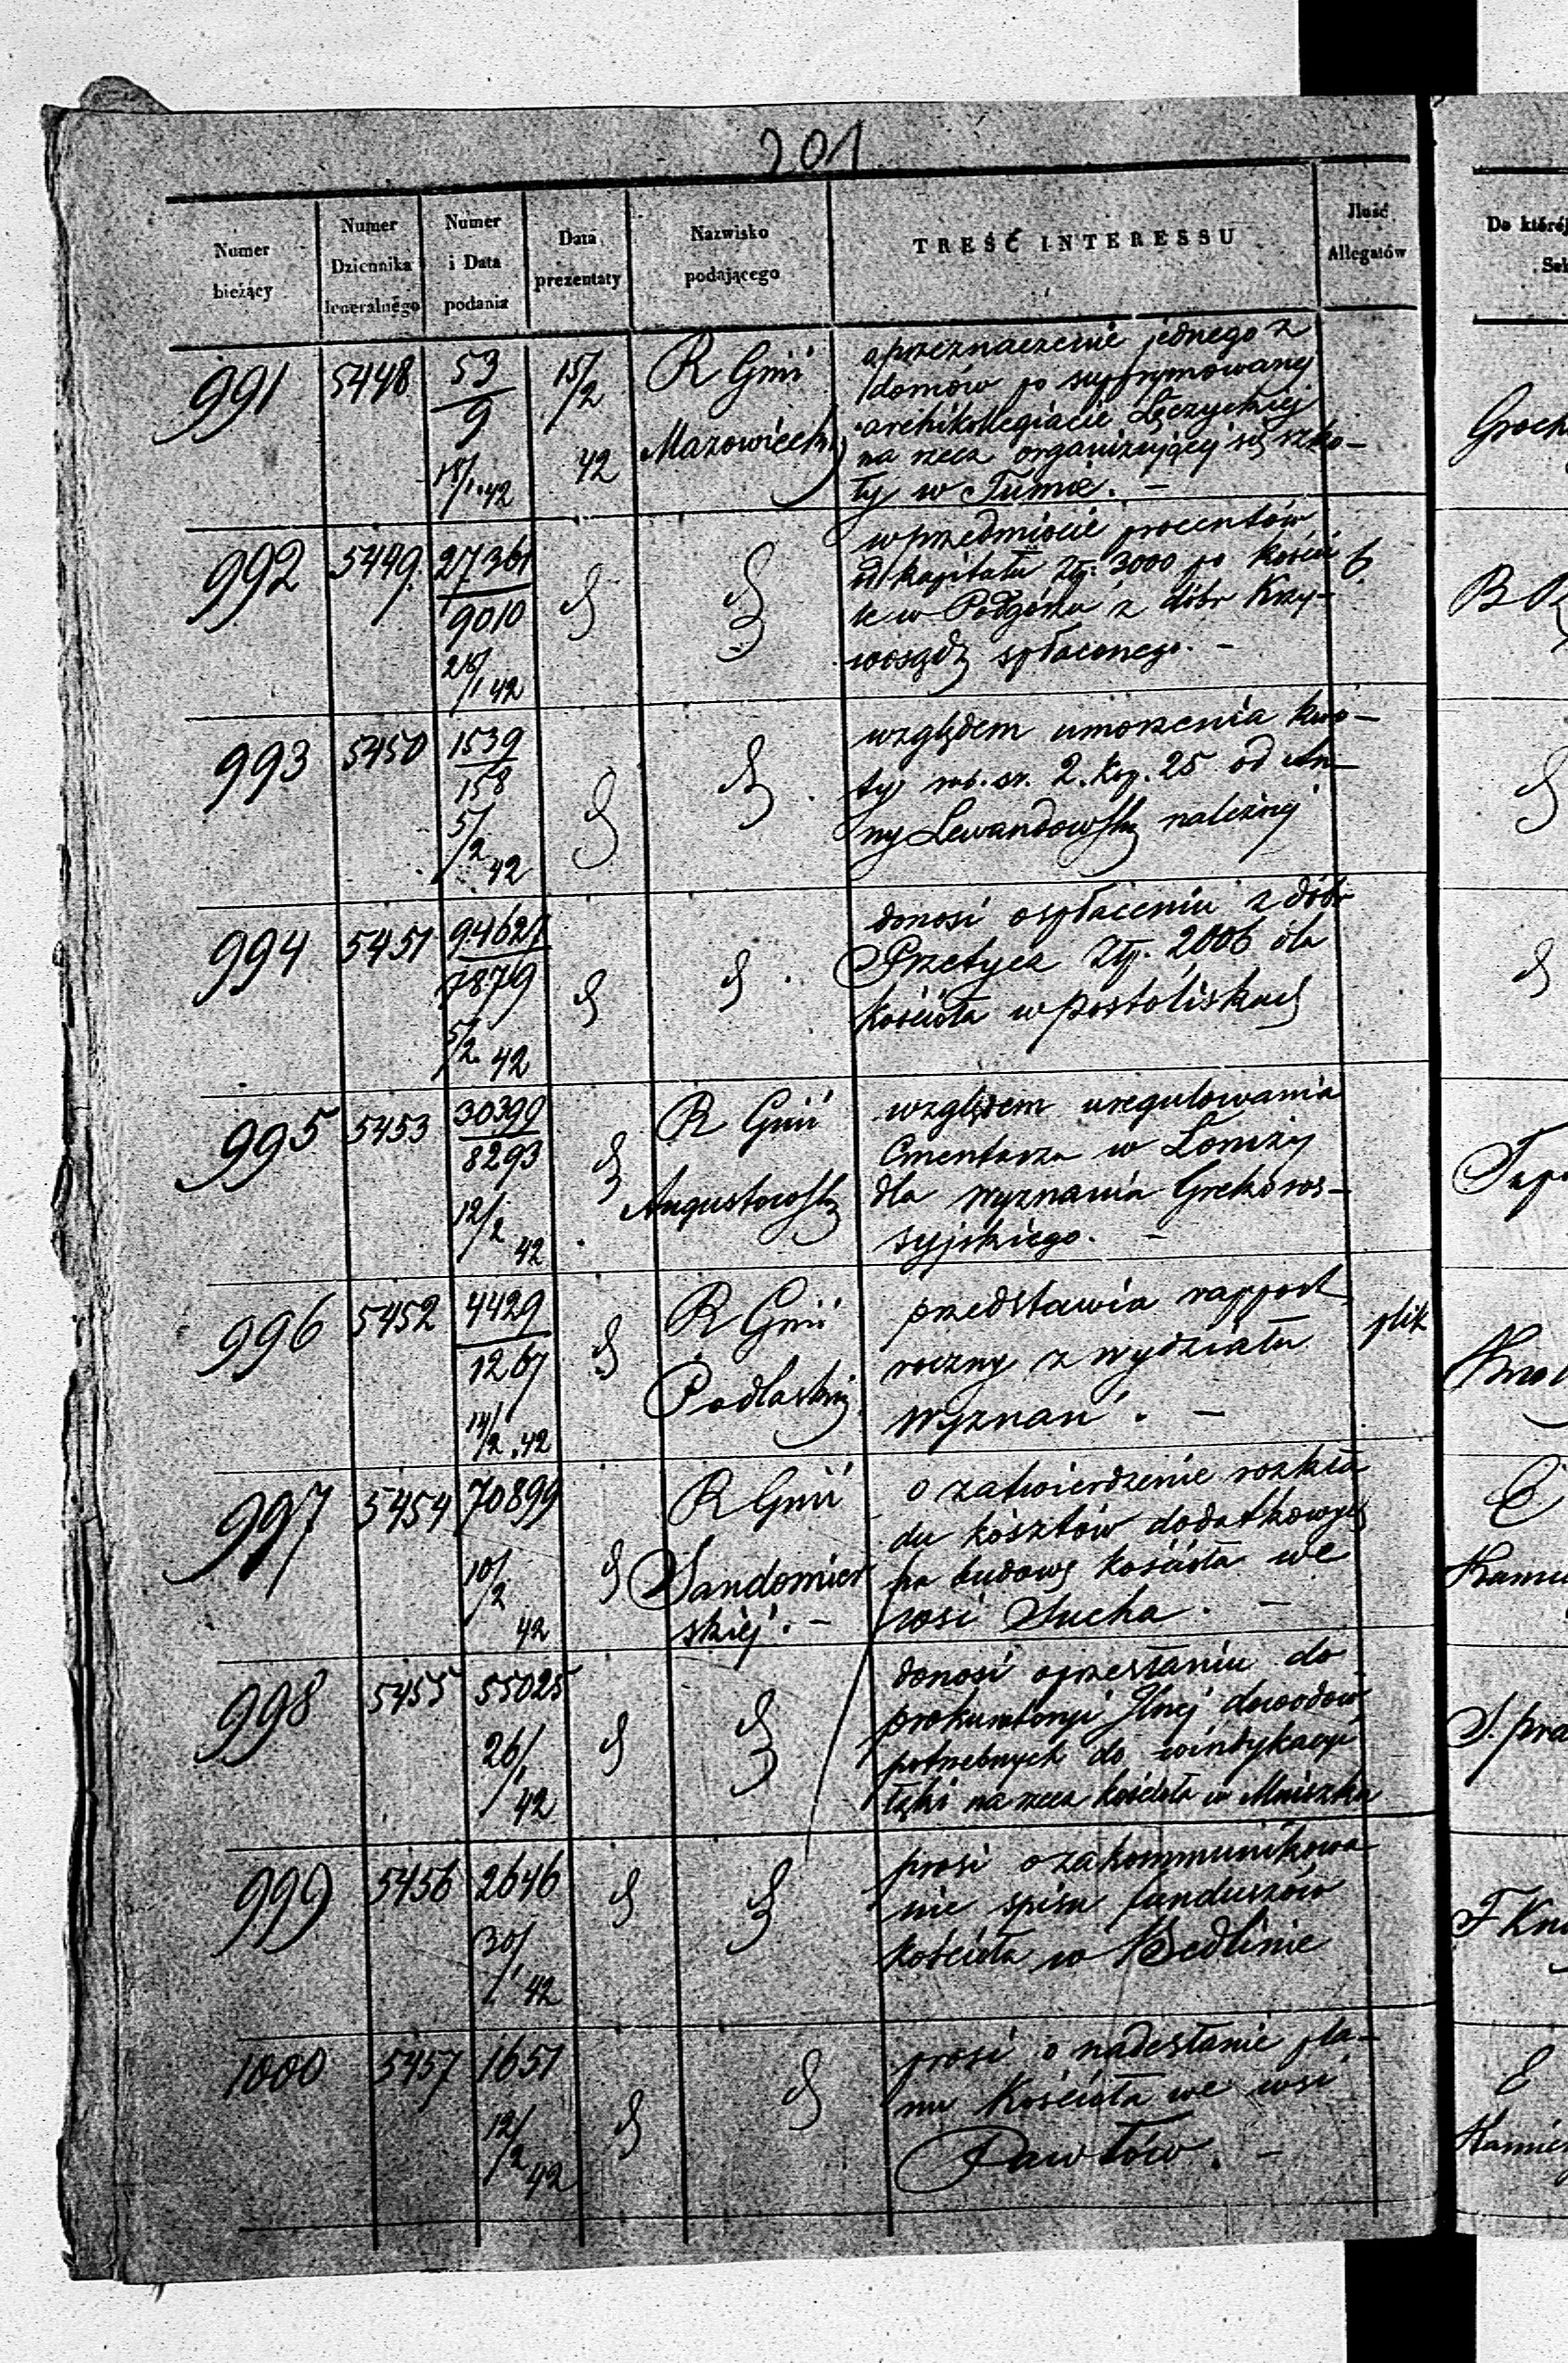 201
Numer bieżący
Numer Dziennika Jeneralnego
Numer i Data podania
Data prezentaty
Nazwisko podającego
TREŚĆ INTERESSU
Ilość Allegatów
Do której
991 5448 53/9 18/1 42 15/2 42 R Gnii Mazowieck
o przeznaczenie jednego z
domów po supprymowanej
archikollegiacie Łęczyckiej
na rzecz organizującej się szko-
ły w Tumie. -
992 5449 27361/9010 28/1 42
w przedmiocie procentów
od kapitału Złp. 3000 po kościo 6
le w Podgórzu z dóbr Krzy-
wosądz spłaconego. -
993 5450 1539/158 5/2 42
względem umorzenia kwo-
ty rub. sr. 2. kop. 25 od An-
ny Lewandowsk należnej
994 5451 94621/7879 5/2 42
donosi o spłaceniu z dóbr
Przetycz Złp. 2006 dla
kościoła w Postoliskach
995 5453 30399/8293 12/2 42 R Gnii Augustowsk
względem uregulowania
Cmentarza w Łomży
dla wyznania Grekoros-
syjskiego. -
996 5452 4429/1267 14/2 42 R Gnii Podlaski
przedstawia rapport plik
roczny z wydziału
wyznań. -
997 5454 70899 10/2 42 R Gnii Sandomier
skiej. -
o zatwierdzenie rozkła
du kosztów dodatkowych
na budowę kościoła we
wsi Sucha. -
998 5455 55025 26/1 42
donosi o przesłaniu do
prokuratoryi Jlnej dowodow
potrzebnych do windykacyi
łąki na rzecz kościoła w Mniszku
999 5456 2646 30/1 42
prosi o zakommunikowa
nie spisu funduszów
kościoła w Bedlinie
1000 5457 1651 12/2 42
prosi o nadesłanie pla-
nu Kościoła we wsi
Pawłów. -